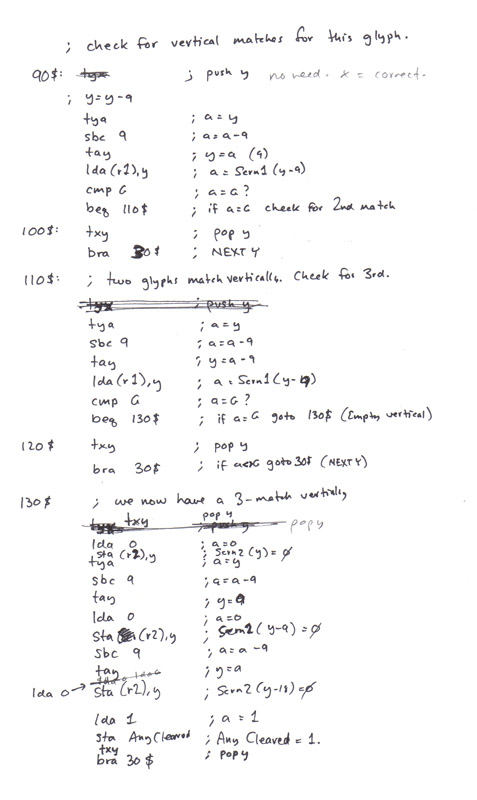 ; check for vertical matches for this glyph.
90$: tyx ; push y no need. x = correct.
; y=y-9
tya ; a=y
sbc 9 ; a=a-9
tay ; y=a (9)
lda(r1),y ; a=Scrn1(y-9)
cmp G ; a=G?
beq 110$ ; if a=G check for 2nd match
100$: txy ; pop y
bra 30$ ; NEXT Y
110$: ; two glyphs match vertically. Check for 3rd.
tyx ; push y
tya ; a=y
sbc 9 ; a=a-9
tay ; y=a-9
lda(r1),y ; a=Scrn1(y-9)
cmp G ; a=G?
beq 130$ ; if a=G goto 130$ (Empty vertical)
120$ txy ; pop y
bra 30$ ; if a<>G goto 30$ (NEXT Y)
130$ ; we now have a 3-match vertially
pop y
tyx txy ; push y pop y
lda 0 ; a=0
sta (r2),y ; Scrn2(y)=0
tya ; a=y
sbc 9 ; a=a-9
tay ; y=a
lda 0 ; a=0
sta (r2),y ; Scrn2(y-9)=0
sbc 9 ; a=a-9
tay ; y=a
lda 0 → sta (r2),y ; Scrn2(y-18)=0
lda 1 ; a=1
sta AnyCleared ; Any Cleared = 1.
txy ; pop y
bra 30$